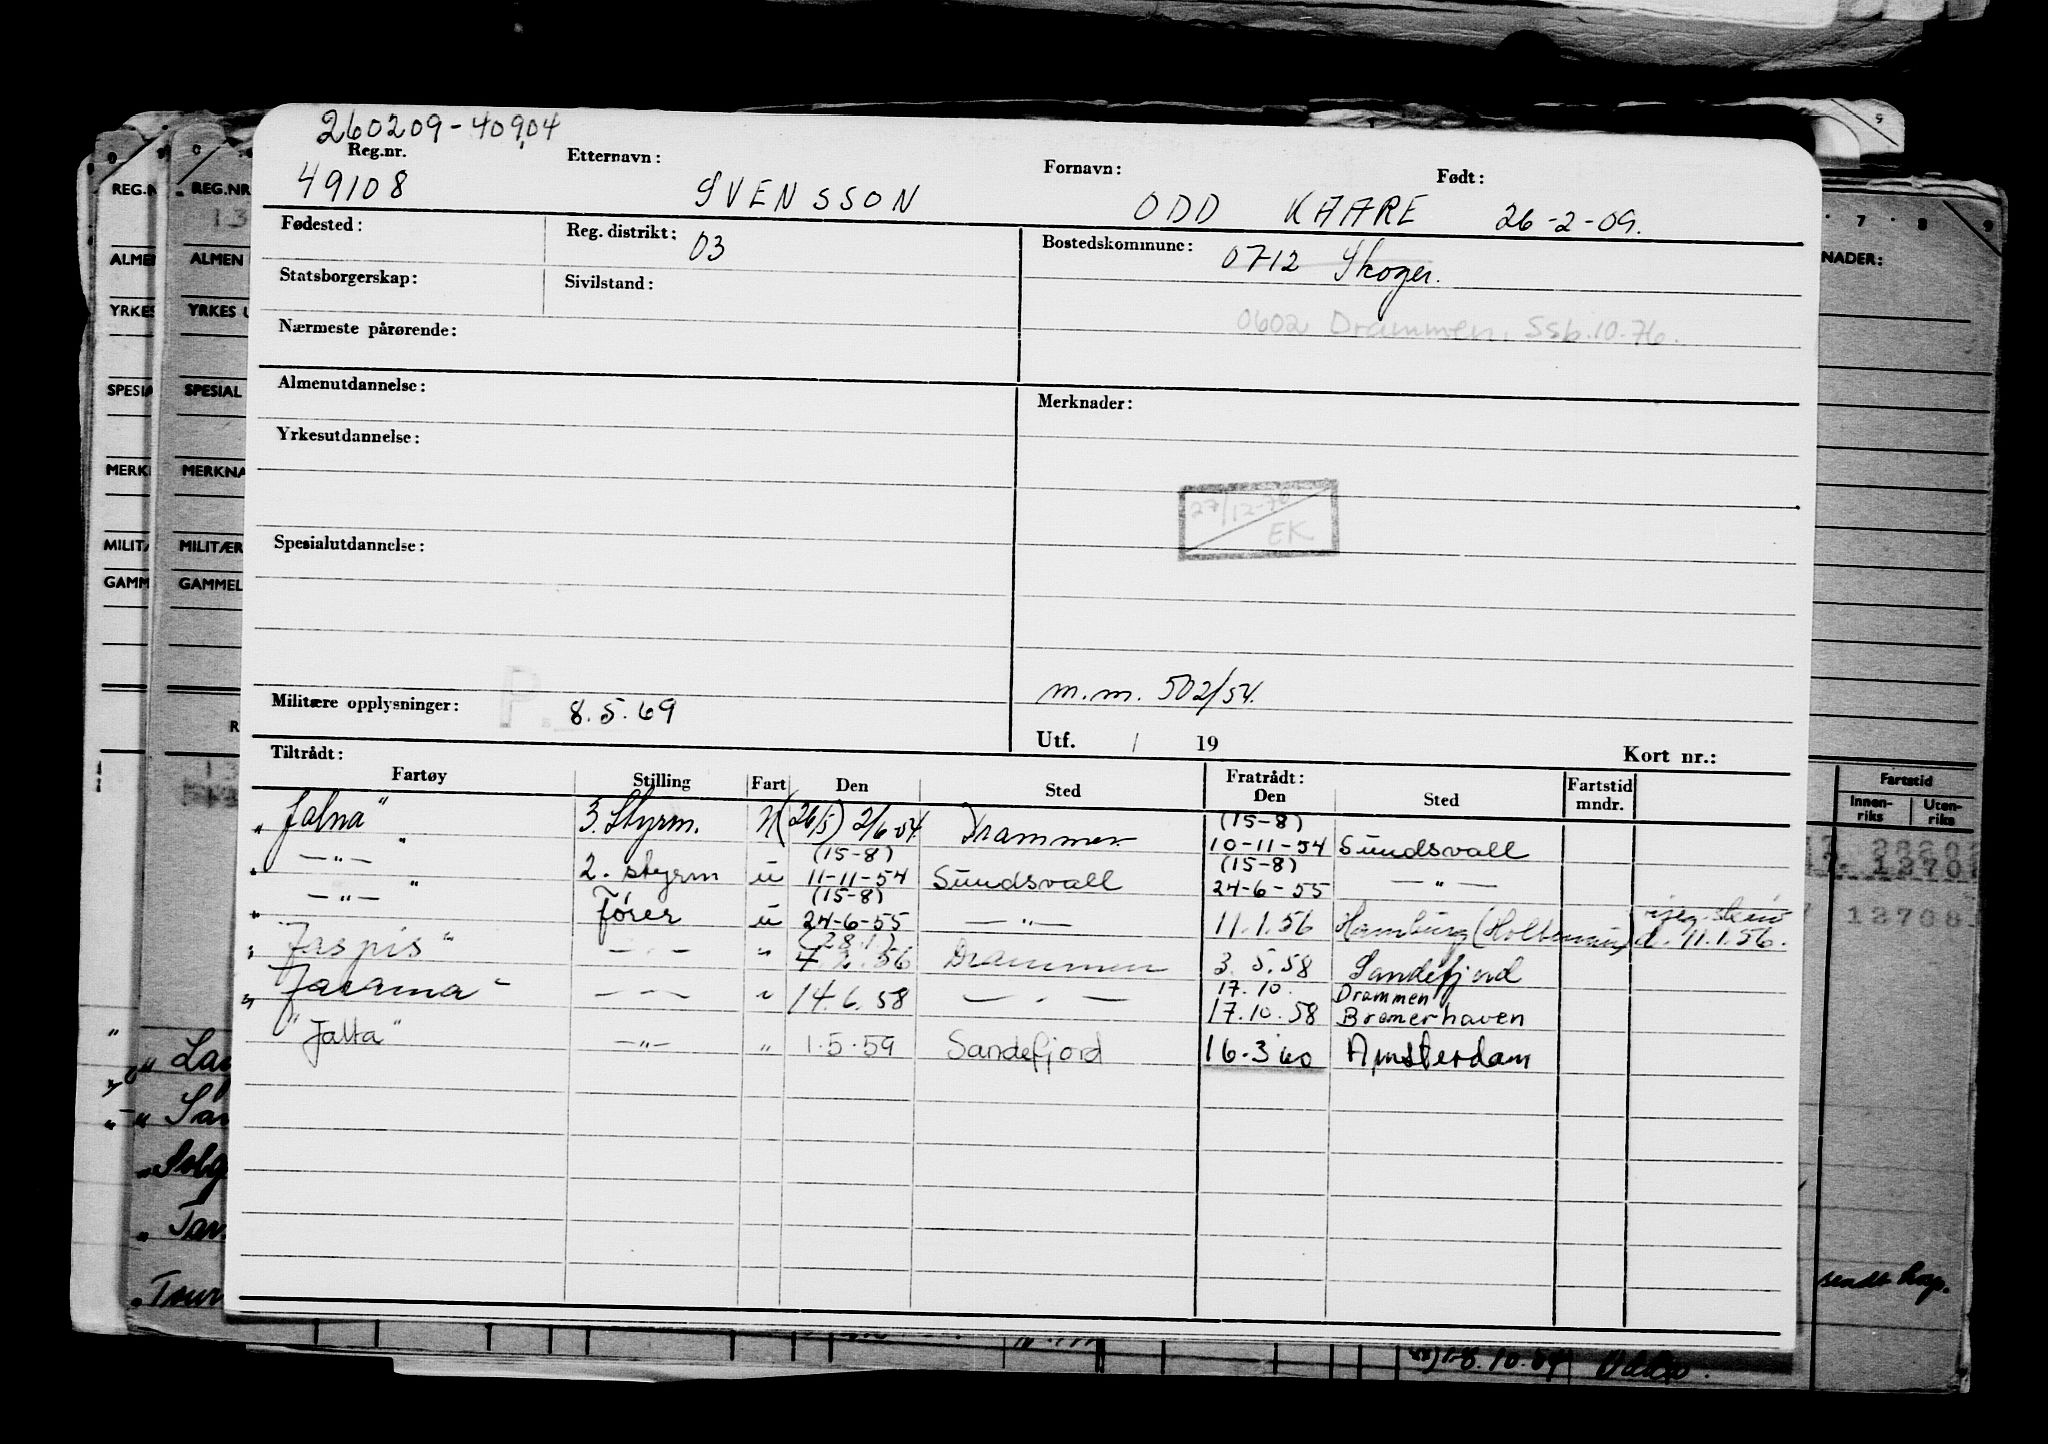 260209-40904
Reg.nr. Etternavn: Fornavn: Født:
49108 SVENSSON ODD KAARE 26-2-09.
Fødested: Reg. distrikt: 03 Bostedskommune: 0712 Skoger.
Statsborgerskap: Sivilstand:
0602 Drammen. Ssb.10.76.
Nærmeste pårørende:
Almenutdannelse: Merknader:
Yrkesutdannelse:
27/12-76
EK
Spesialutdannelse:
m.m. 502/54.
Militære opplysninger: P. 8.5.69
Utf. / 19 Kort nr.:
Tiltrådt: Fratrådt:
Fartøy Stilling Fart Den Sted Den Sted Fartstid mndr.
"Jalna" 3. Styrm. (26/5) 2/6-54. Drammen (15-8) 10-11-54 Sundsvall
" —"— " 2. styrm u (15-8) 11-11-54 Sundsvall (15-8) 24-6-55 —"—
" —"— " fører u (15-8) 24-6-55 —"— 11.1.56 Hamburg 11.1.56.
"Jaspis" —"— " (28.1) 4.2.56 Drammen 3.5.58 Sandefjord
"Jarama" —"— " 14.6.58 —"— 17.10. Drammen
17.10.58 Bremerhaven
"Jalta" —"— " 1.5.59 Sandefjord 16.3.60 Amsterdam
REG.NR
ALMEN
YRKES
SPESIAL
MERKNA
MILITÆR
GAMMEL
NADER:
7 8 9
Fartstid
Innenriks Utenriks
12708
sendt
8.10.54